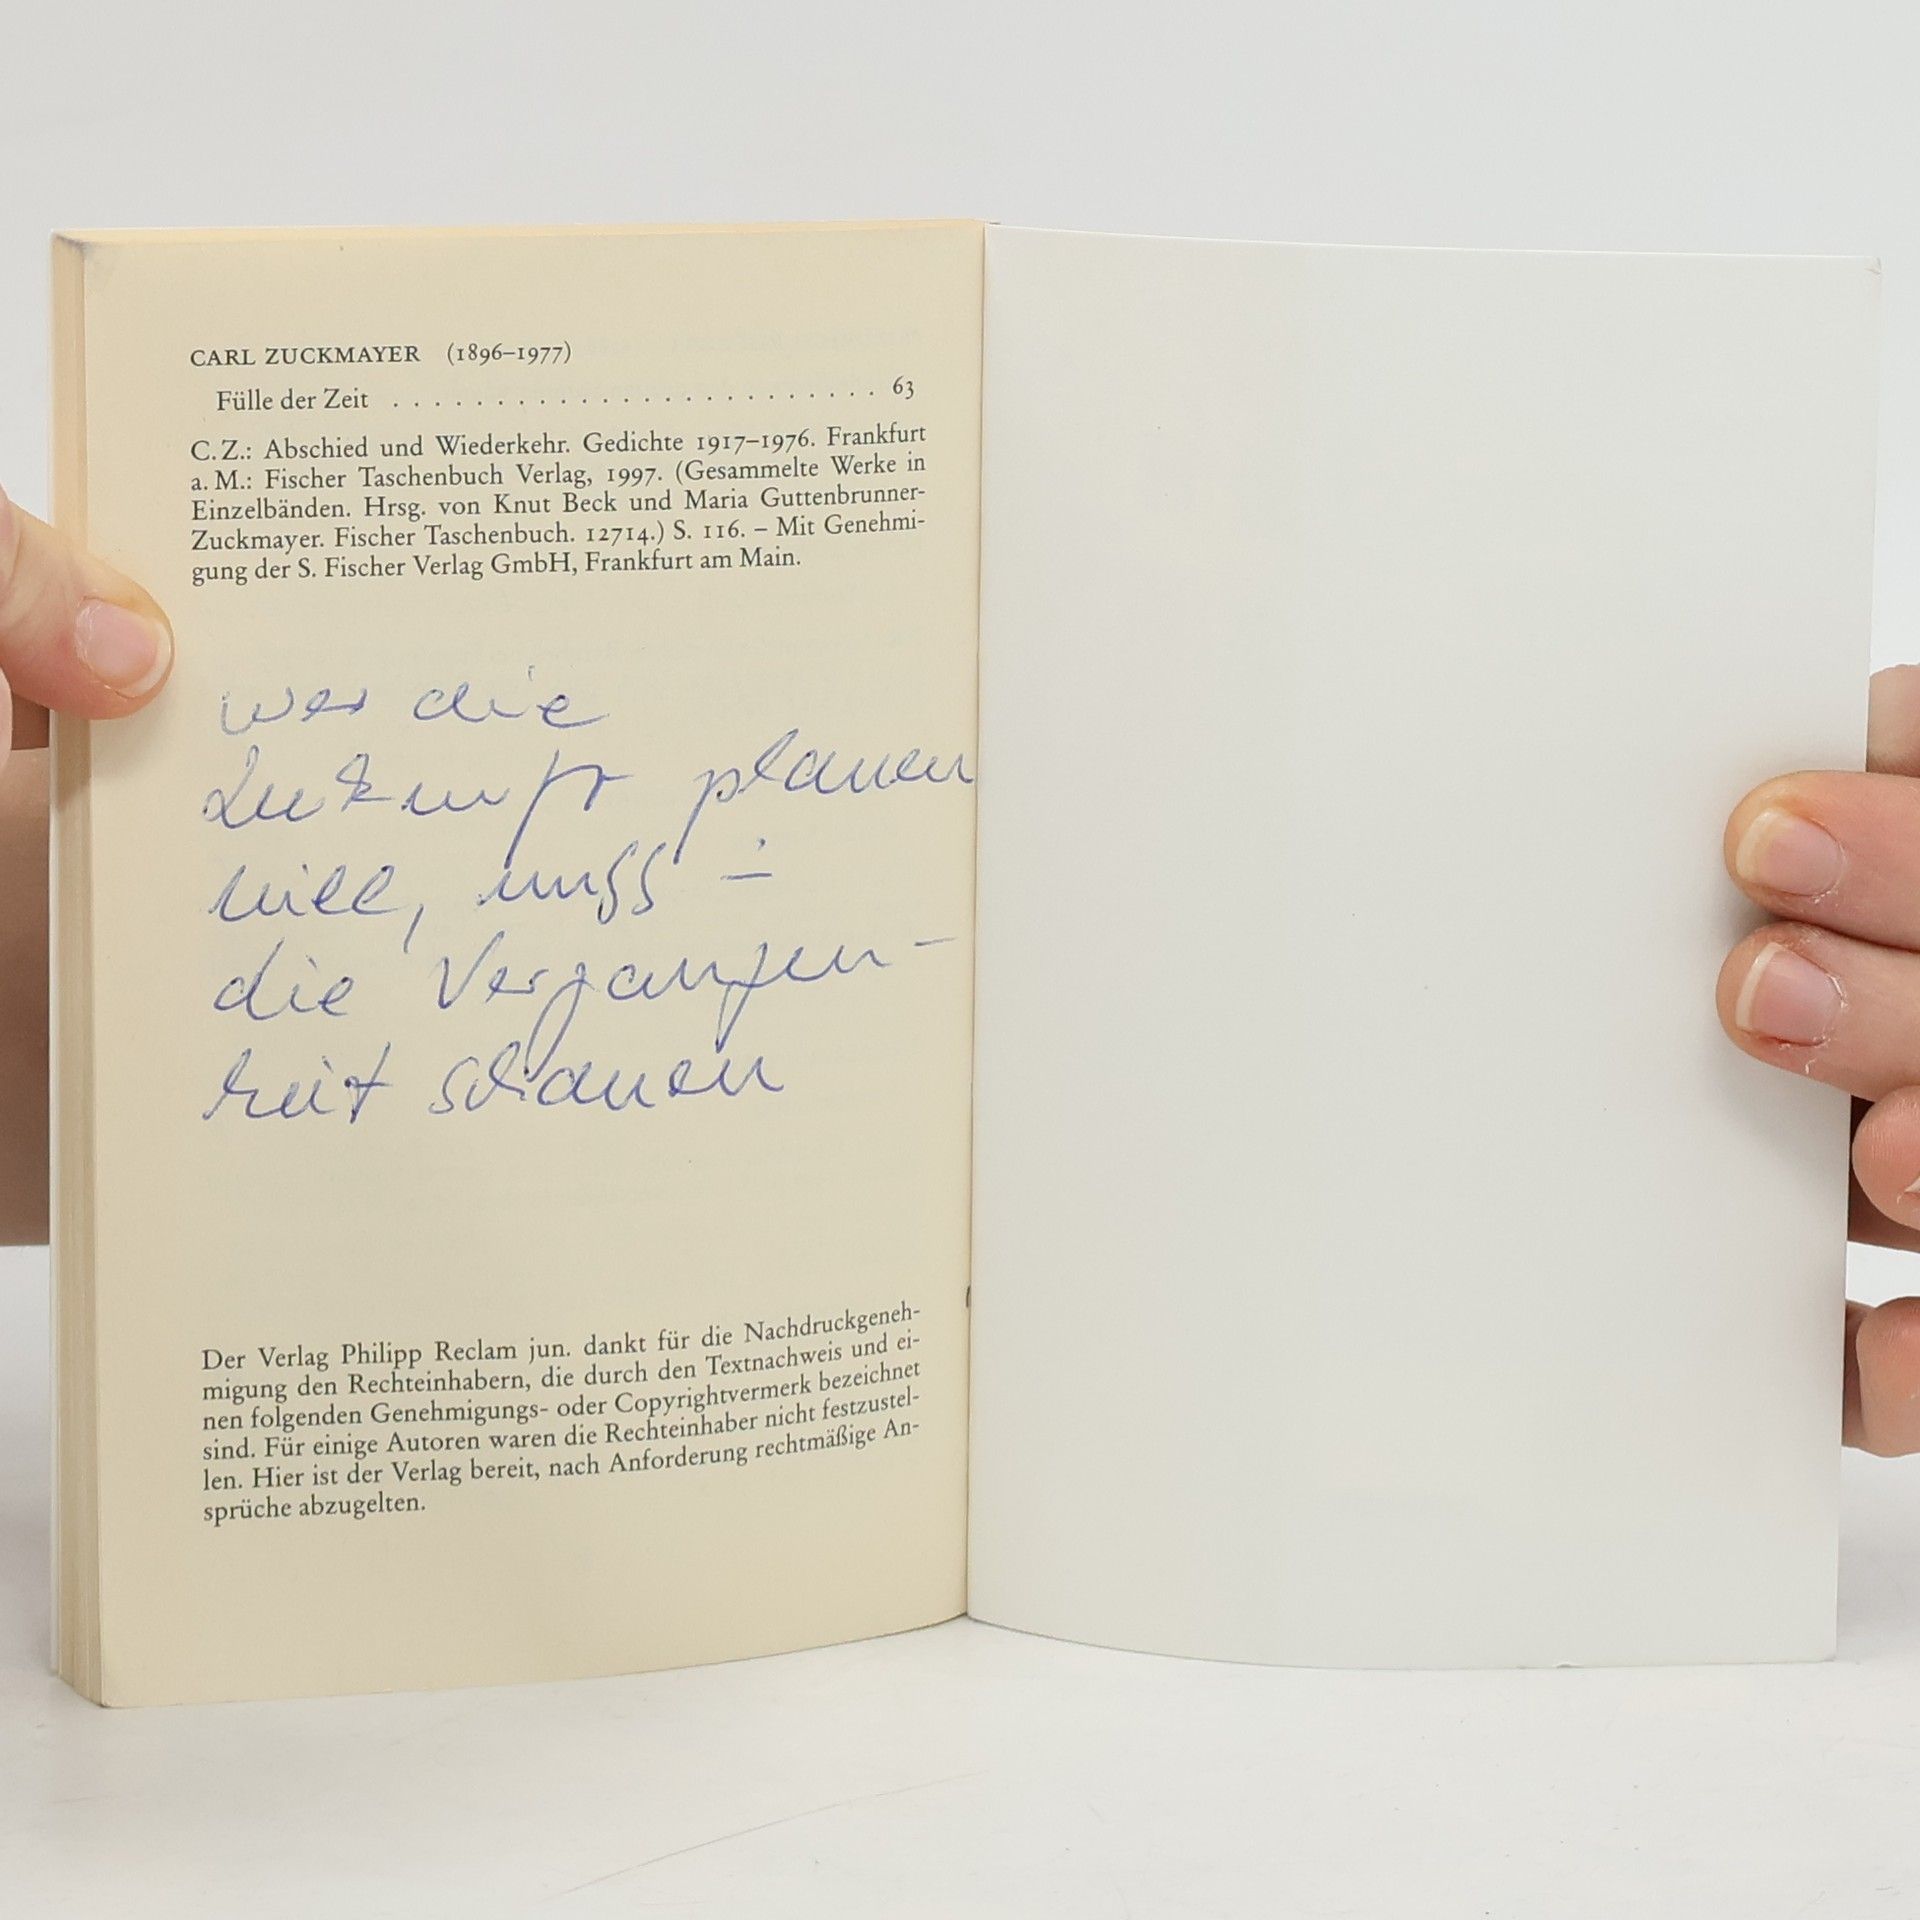 CARL ZUCKMAYER (1896–1977)
Fülle der Zeit . . . . . . . . . . . . . . . . . . . . . . . . 63
C. Z.: Abschied und Wiederkehr. Gedichte 1917–1976. Frankfurt
a. M.: Fischer Taschenbuch Verlag, 1997. (Gesammelte Werke in
Einzelbänden. Hrsg. von Knut Beck und Maria Guttenbrunner-
Zuckmayer. Fischer Taschenbuch. 12714.) S. 116. – Mit Genehmi-
gung der S. Fischer Verlag GmbH, Frankfurt am Main.
wer die
Zukunft planen
will, muss in
die Vergangen-
heit schauen
Der Verlag Philipp Reclam jun. dankt für die Nachdruckgeneh-
migung den Rechteinhabern, die durch den Textnachweis und ei-
nen folgenden Genehmigungs- oder Copyrightvermerk bezeichnet
sind. Für einige Autoren waren die Rechteinhaber nicht festzustel-
len. Hier ist der Verlag bereit, nach Anforderung rechtmäßige An-
sprüche abzugelten.